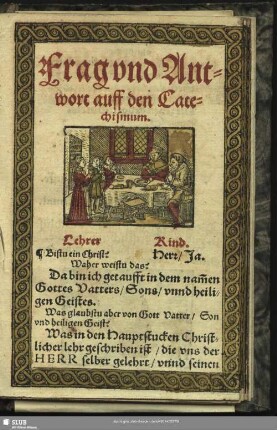 Frag vnd Ant-
wort auff den Cate-
chismum.
Lehrer Kind.
¶ Bistu ein Christ? Herr/Ja.
Waher weistu das?
Da bin ich getaufft in dem namen
Gottes Vatters/Sons/vnnd heili-
gen Geistes.
Was glaubstu aber von Gott Vatter/Son
vnd heiligen Geist?
Was in den Hauptstucken Christ-
licher lehr geschriben ist/die vns der
HERR selber gelehrt/vnnd seinen
SLUB